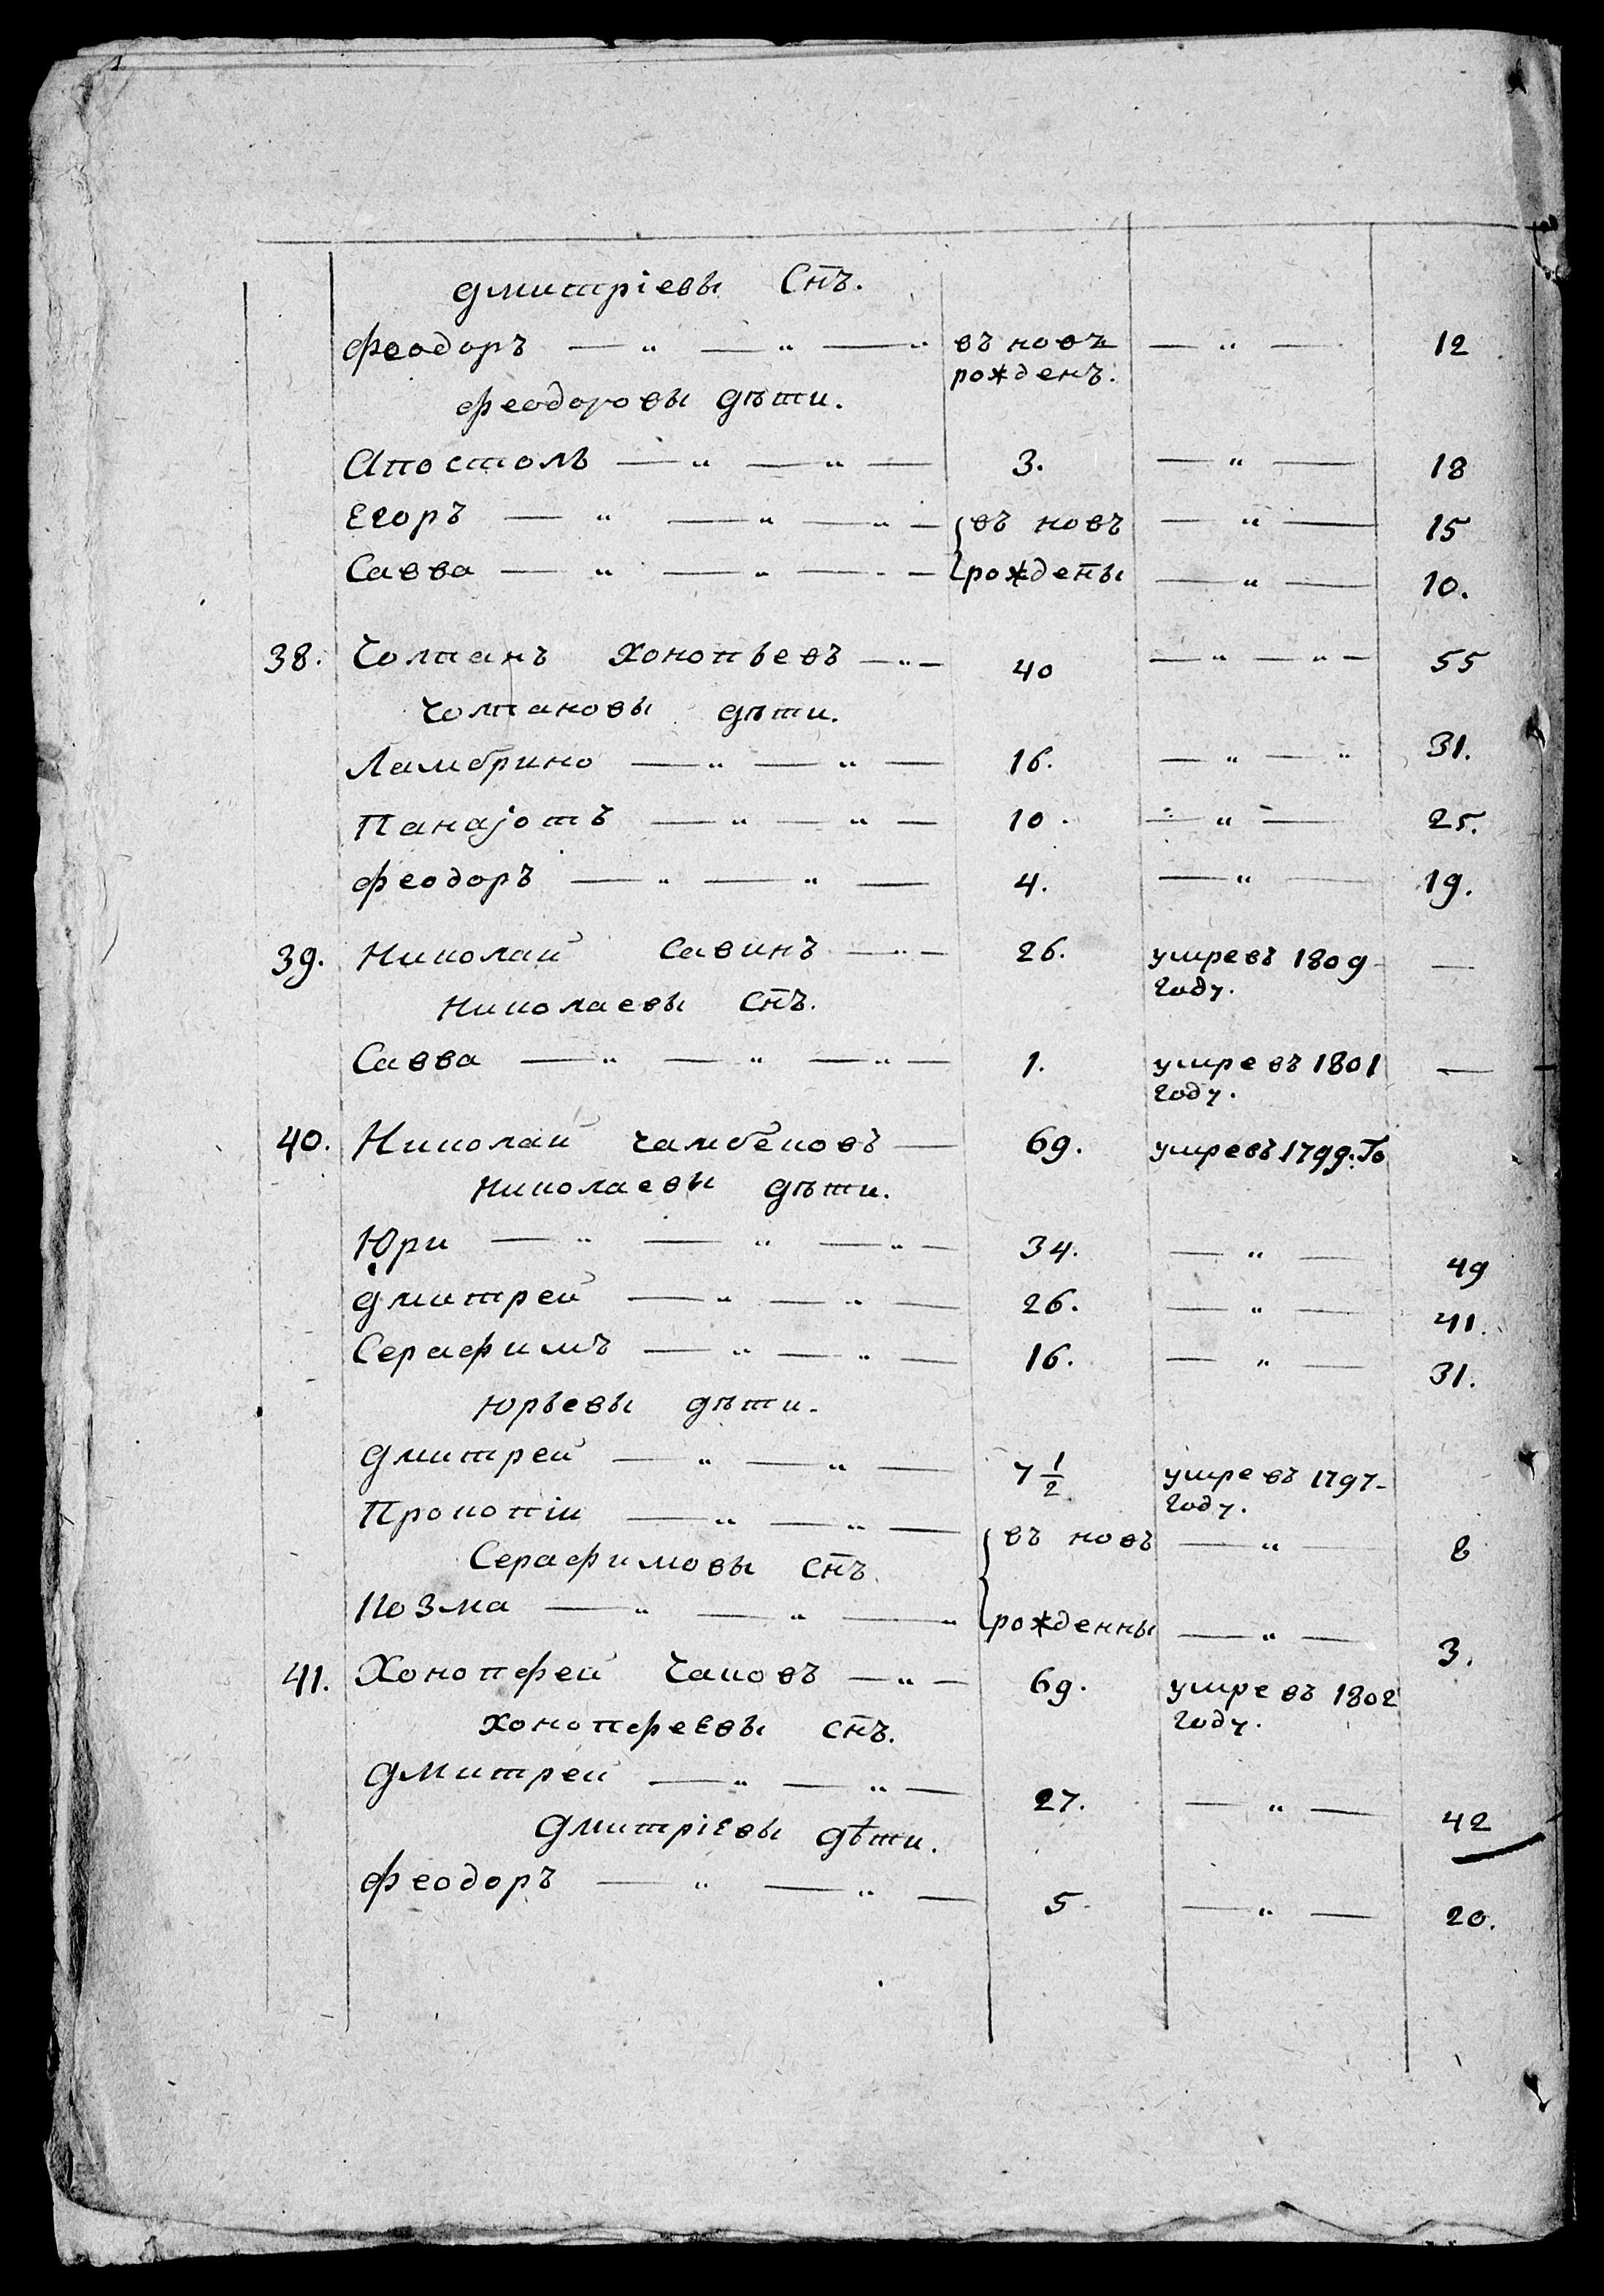 Дмитріевы Снъ.
Феодоръ — „ — „ — „ въ новъ — „ — 12
рожденъ.
Феодоровы дѣти.
Апостолъ — „ — „ — 3. — „ — 18
Егоръ — „ — „ — „ — въ новъ — „ — 15
Савва — „ — „ — - — рождены — „ — 10.
38. Чолпанъ Хонопьевъ — „ — 40 — „ — „ — 55
Чолпановы дѣти.
Ламбрино — „ — „ — 16. — „ — „ 31.
Панаjотъ — „ — „ — 10. — „ — 25.
Феодоръ — „ — „ — 4. — „ — 19.
39. Николай Савинъ — „ — 26. умре въ 1809 —
году.
Николаевы Снъ.
Савва — „ — „ — „ — 1. умре въ 1801 —
году.
40. Николай Чамбековъ — 69. умре въ 1799: Го
Николаевы дѣти.
Юри — „ — „ — „ — 34. — „ — 49
Дмитрей — „ — „ — 26. — „ — 41.
Серафимъ — „ — „ — 16. — „ — 31.
Юрьевы дѣти.
Дмитрей — „ — „ — 7 1/2 умре въ 1797-
году.
Прокопiй — „ — „ — въ новъ — „ — 8
Серафимовы Снъ.
Козма — „ — „ — „ рожденны — „ — 3.
41. Хонопфей Чаковъ — „ — 69. умре въ 1802
году.
Хонопфеевы снъ.
Дмитрей — „ — „ — 27. — „ — 42
Дмитріевы дѣти.
Феодоръ — „ — „ — 5 — „ — 20.